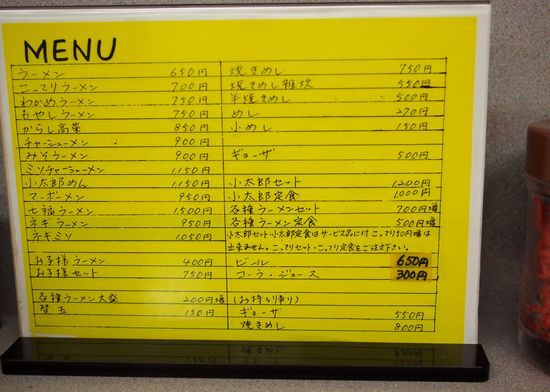 MENU
ラーメン 650円
こってりラーメン 700円
わかめラーメン 750円
もやしラーメン 750円
からし高菜 850円
チャーシューメン 900円
みそラーメン 900円
ミソチャーシューメン 1150円
小太郎めん 1150円
マーボーメン 950円
七福ラーメン 1500円
ネギラーメン 950円
ネギミソ 1050円
お子様ラーメン 400円
お子様セット 750円
各種ラーメン大盛 200円増
替玉 150円
焼きめし 750円
焼きめし雑炊 550円
半焼きめし 500円
めし 270円
小めし 150円
ギョーザ 500円
小太郎セット 1200円
小太郎定食 1000円
各種ラーメンセット 700円増
各種ラーメン定食 500円増
小太郎セット・小太郎定食はサービス品に付 こってり50円増は
出来ません。こってりセット・こってり定食をご注文下さい。
ビール 650円
コーラ・ジュース 300円
(お持ち帰り)
ギョーザ 550円
焼きめし 800円